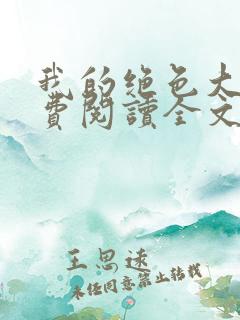 我的绝色大
費閱讀全文
王思远
未经同意禁止转载